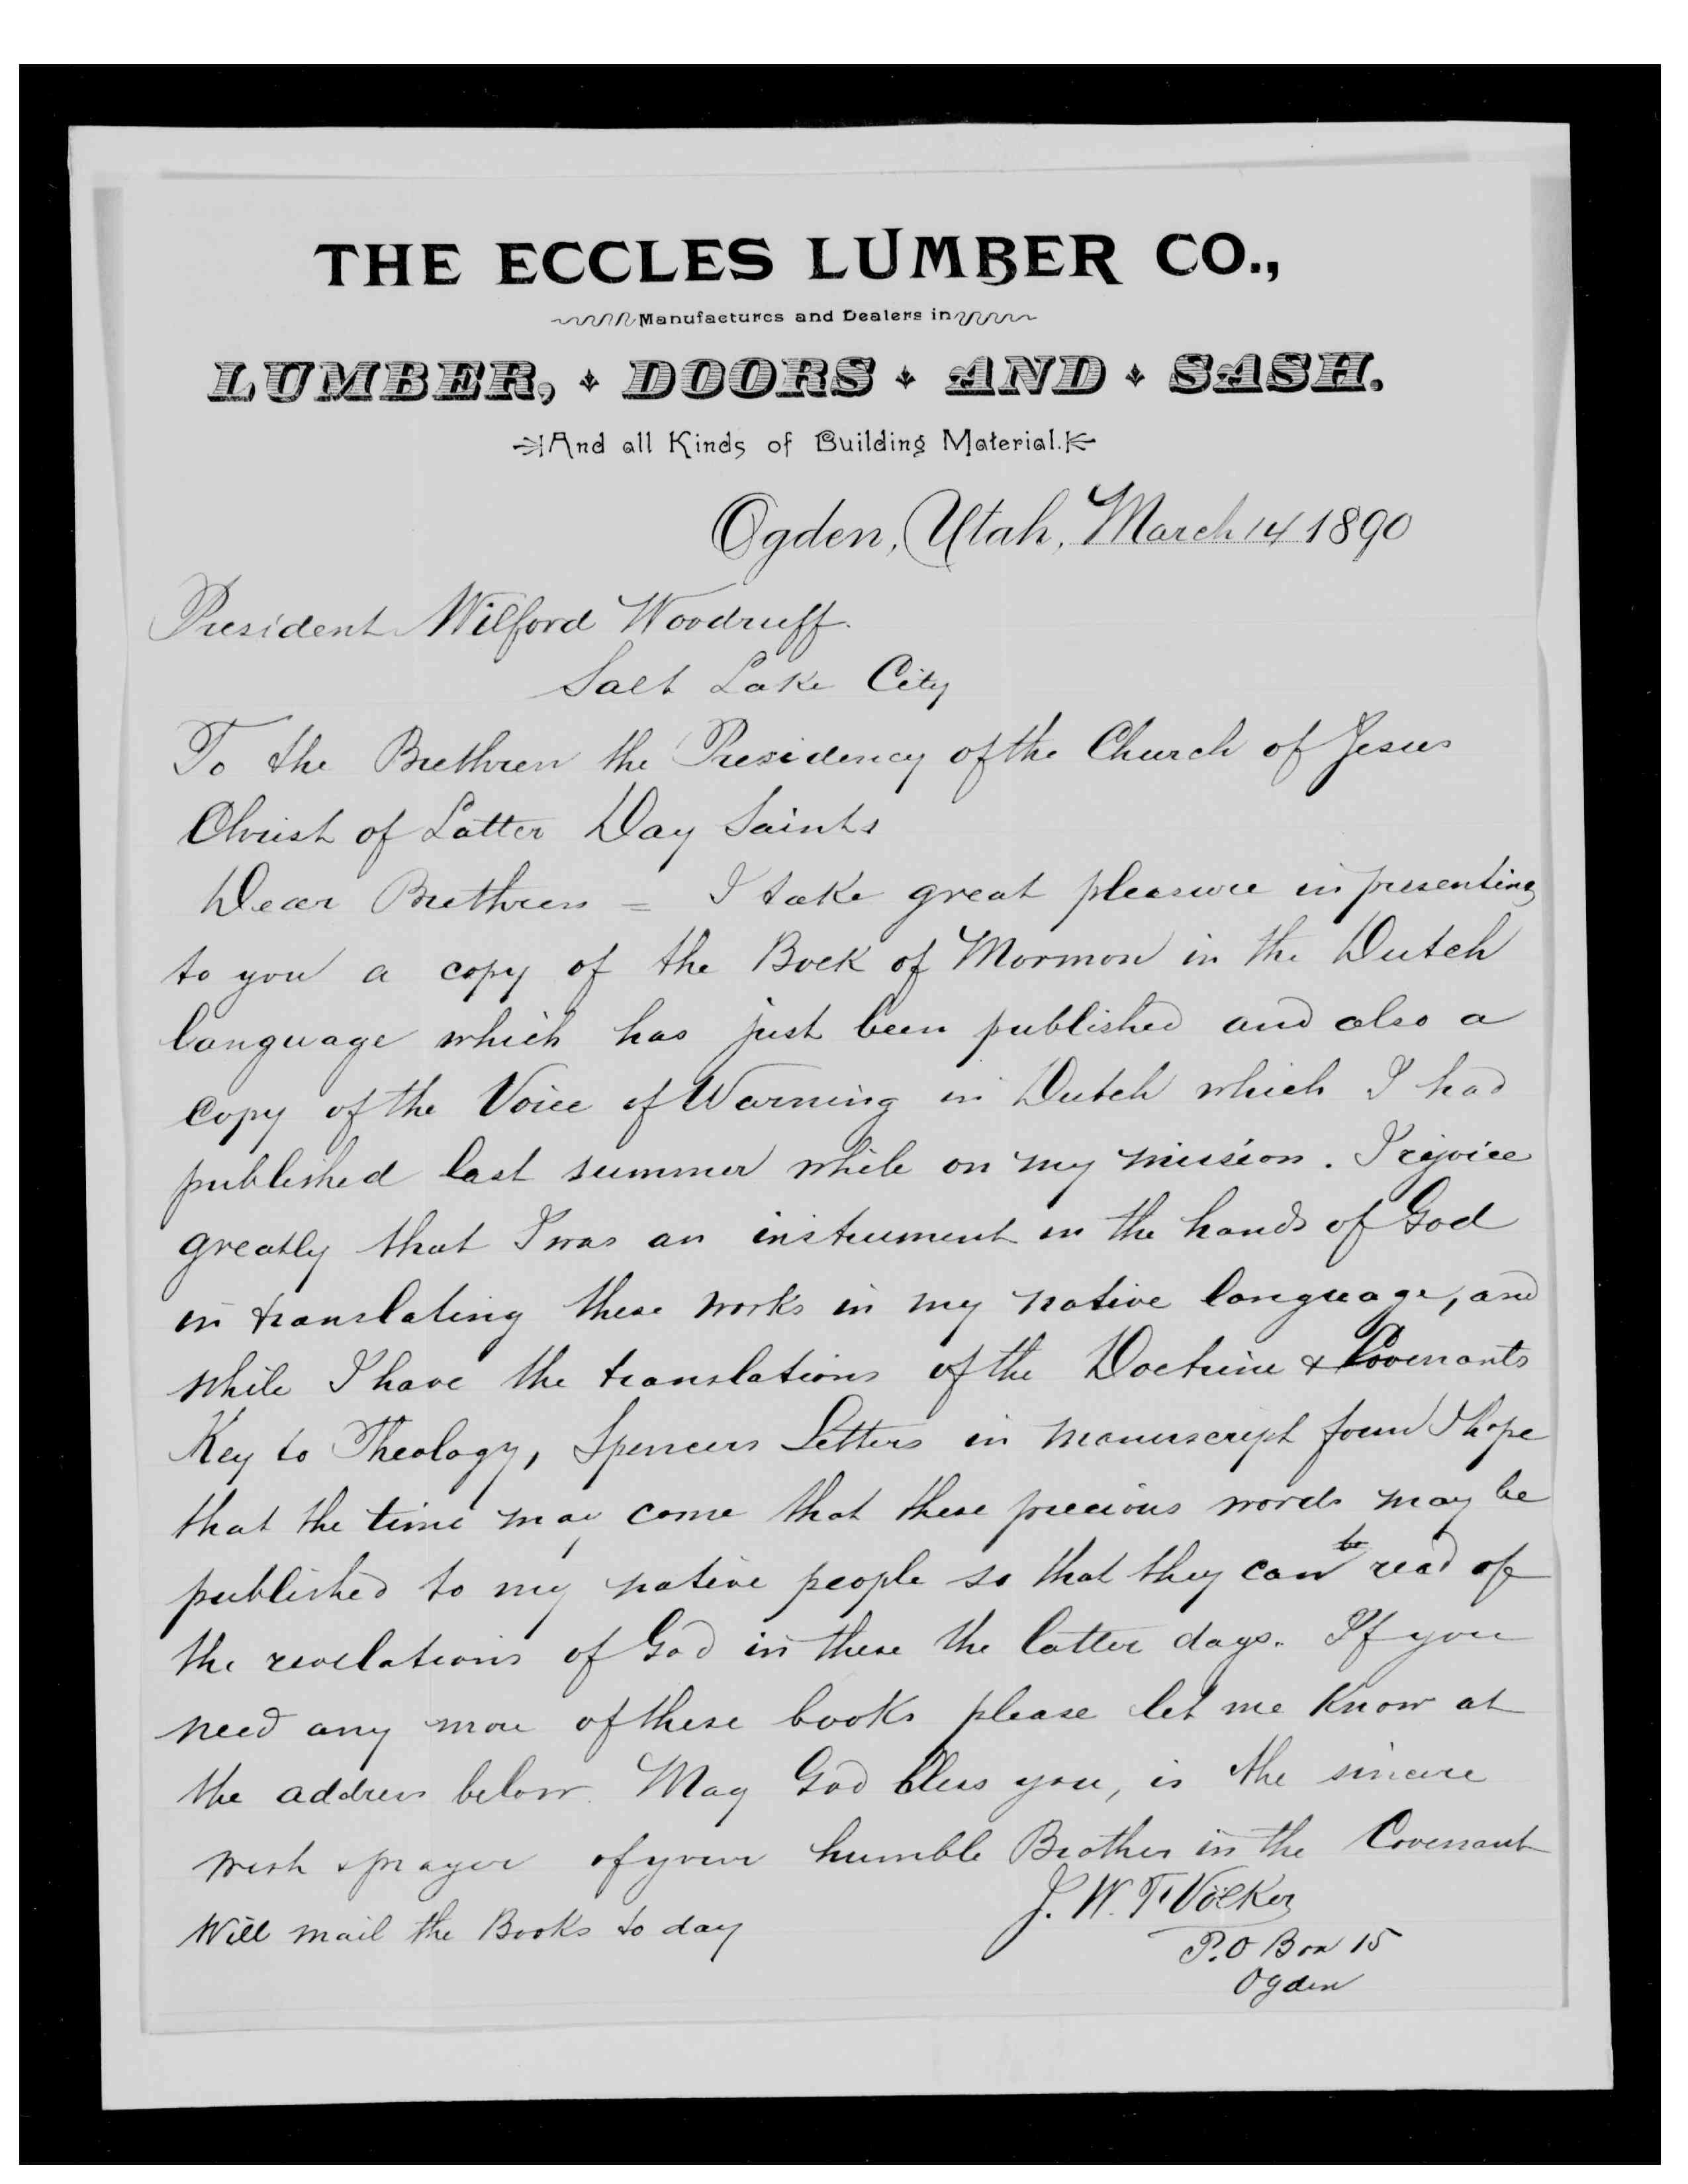 THE ECCLES LUMBER CO.,
Manufactures and Dealers in
LUMBER, DOORS AND SASH.
And all Kinds of Building Material.
Ogden, Utah, March 14 1890
President Wilford Woodruff.
Salt Lake City
To the Brethren the Presidency of the Church of Jesus
Christ of Latter Day Saints
Dear Brethren = I take great pleasure in presenting
to you a copy of the Book of Mormon in the Dutch
language which has just been published and also a
copy of the Voice of Warning in Dutch which I had
published last summer while on my mission. I rejoice
greatly that I was an instrument in the hands of God
in translating these works in my native language, and
while I have the translations of the Doctrine & Covenants
Key to Theology, Spencers Letters in manuscript form I hope
that the time may come that these precious words may be
published to my native people so that they can read of
the revelations of God in these the latter days. If you
need any more of these books please let me know at
the address below. May God bless you, is the sincere
wish & prayer of your humble Brother in the Covenant
J. W. F. Völker
Will mail the Books to day
P.O Box 15
Ogden